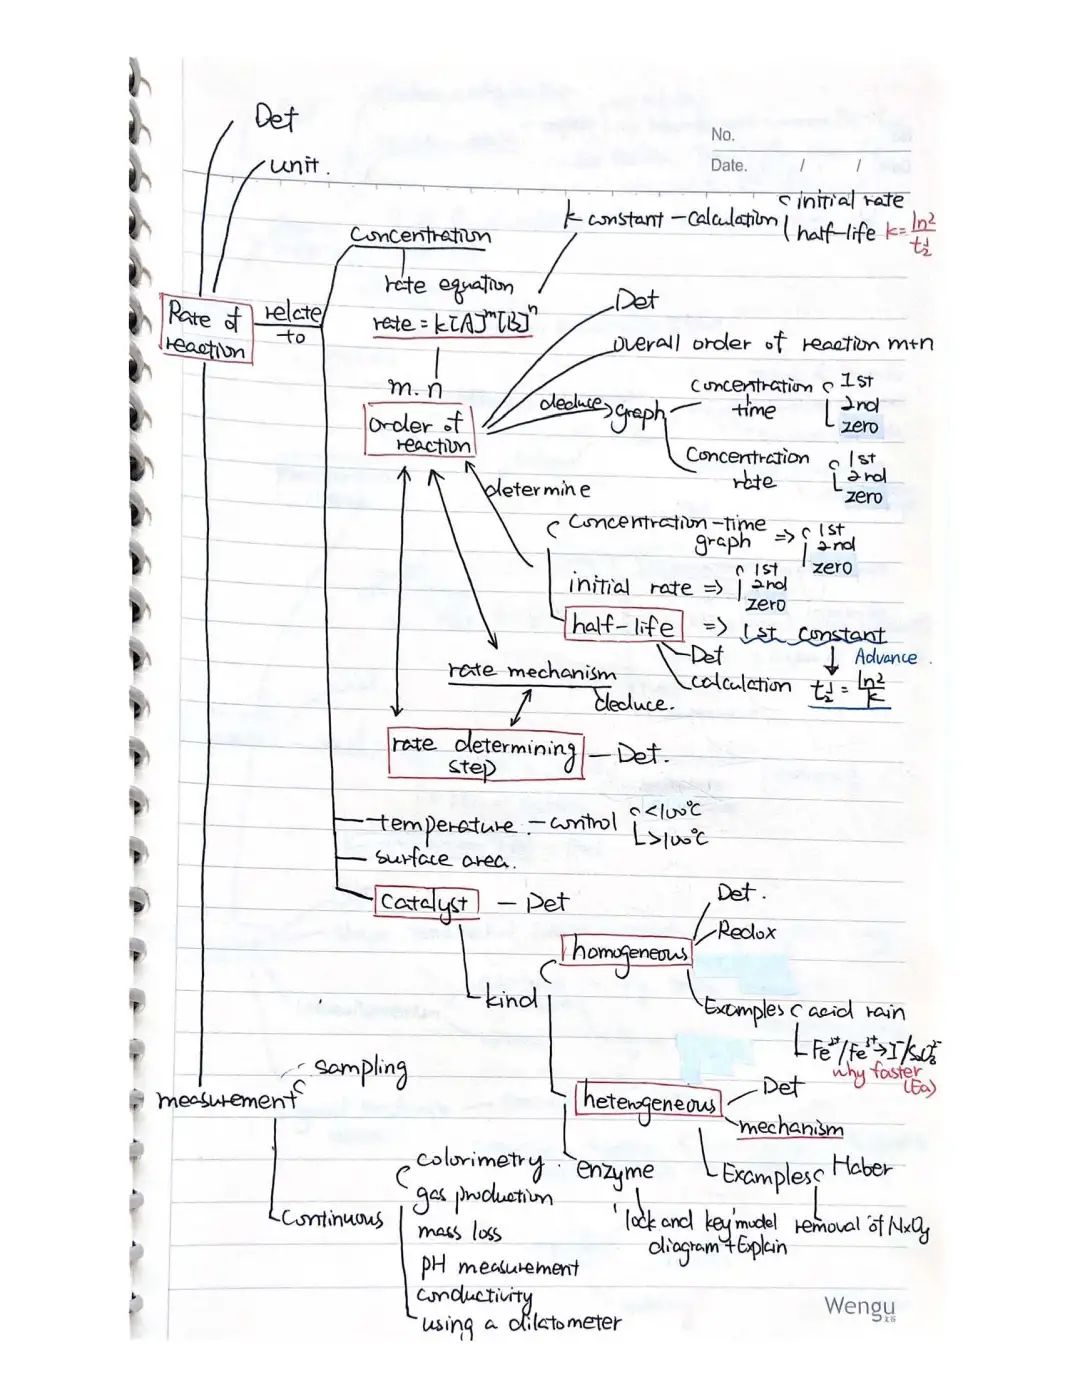 Det
unit.
No.
Date. / /
k constant - calculation
initial rate
half-life k = ln2 / t½
Concentration
rate equation
rate = k[A]^m[B]^n
Rate of
reaction
relate
to
m. n
Order of
reaction
Det
overall order of reaction m+n
deduce
graph
Concentration
time
1st
2nd
zero
Concentration
rate
1st
2nd
zero
determine
Concentration-time
graph => 1st
2nd
zero
initial rate => 1st
2nd
zero
half-life => 1st constant
Det
calculation
Advance.
t½ = ln2 / k
rate mechanism
deduce.
rate determining
step
- Det.
temperature. - control <100°C
>100°C
surface area.
Catalyst - Det
kind
homogeneous
Det.
Redox
Examples acid rain
Fe²⁺/Fe³⁺→I⁻/S₂O₈²⁻
why faster
(Ea)
heterogeneous
Det
mechanism
Examples Haber
removal of NxOy
enzyme
'lock and key' model
diagram + Explain
measurement
sampling
Continuous
colorimetry.
gas production
mass loss
pH measurement
conductivity
using a dilatometer
Wengu